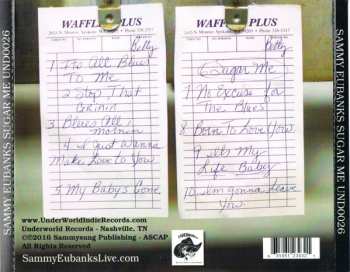 SAMMY EUBANKS SUGAR ME UND0026
WAFFLES PLUS
Betty
1 It's All Blues
To Me
2 Stop That
Cryin
3 Blues All
Mornin
4 I Just Wanna
Make Love to You
5 My Baby's Gone
WAFFLES PLUS
Betty
6 Sugar Me
7 No Excuse for
The Blues
8 Born To Love You
9 It's My
Life Baby
10 I'm gonna Leave
You
www.UnderWorldIndieRecords.com
Underworld Records - Nashville, TN
©2016 Sammysung Publishing - ASCAP
All Rights Reserved
SammyEubanksLive.com
SAMMY EUBANKS SUGAR ME UND0026